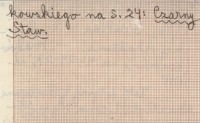 kowskiego na s. 24: Czarny
Staw.